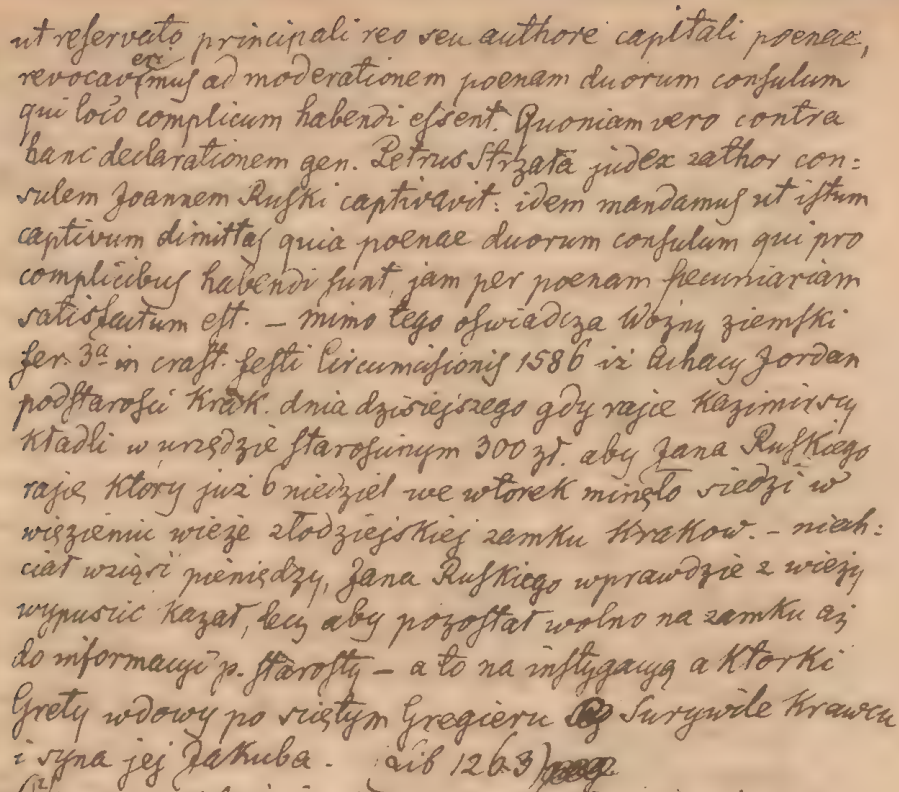 ut reservato principali reo seu authore capitali poenae,
revocaverimus ad moderationem poenam duorum consulum
qui loco complicum habendi essent. Quoniam vero contra
hanc declarationem gen. Petrus Strzała judex zathor con:
sulem Joannem Ruski captivavit: idem mandamus ut istum
captivum dimittas quia poenae duorum consulum qui pro
complicibus habendi sunt, jam per poenam pecuniariam
satisfactum est. – mimo tego oswiadcza Wozny ziemski
fer. 3ª in crast. festi Circumcisionis 1586 iż Achacy Jordan
podstarosci Krak. dnia dzisiejszego gdy rajce Kazimirscy
kładli w urzędzie starościnym 300 zł. aby Jana Ruskiego
rajcę, ktory już 6 niedziel we wtorek minęło siedzi w
więzieniu wieże złodziejskiej zamku Krakow. – niech:
ciał wziąść pieniędzy, Jana Ruskiego wprawdzie z wieży
wypuscic kazał, lecz aby pozostał wolno na zamku aż
do informacyi p. starosty – a to na instygacyą aktorki
Grety wdowy po ściętym Gregieru Surywile Krawcu
i syna jej Jakuba. Lib 1263)